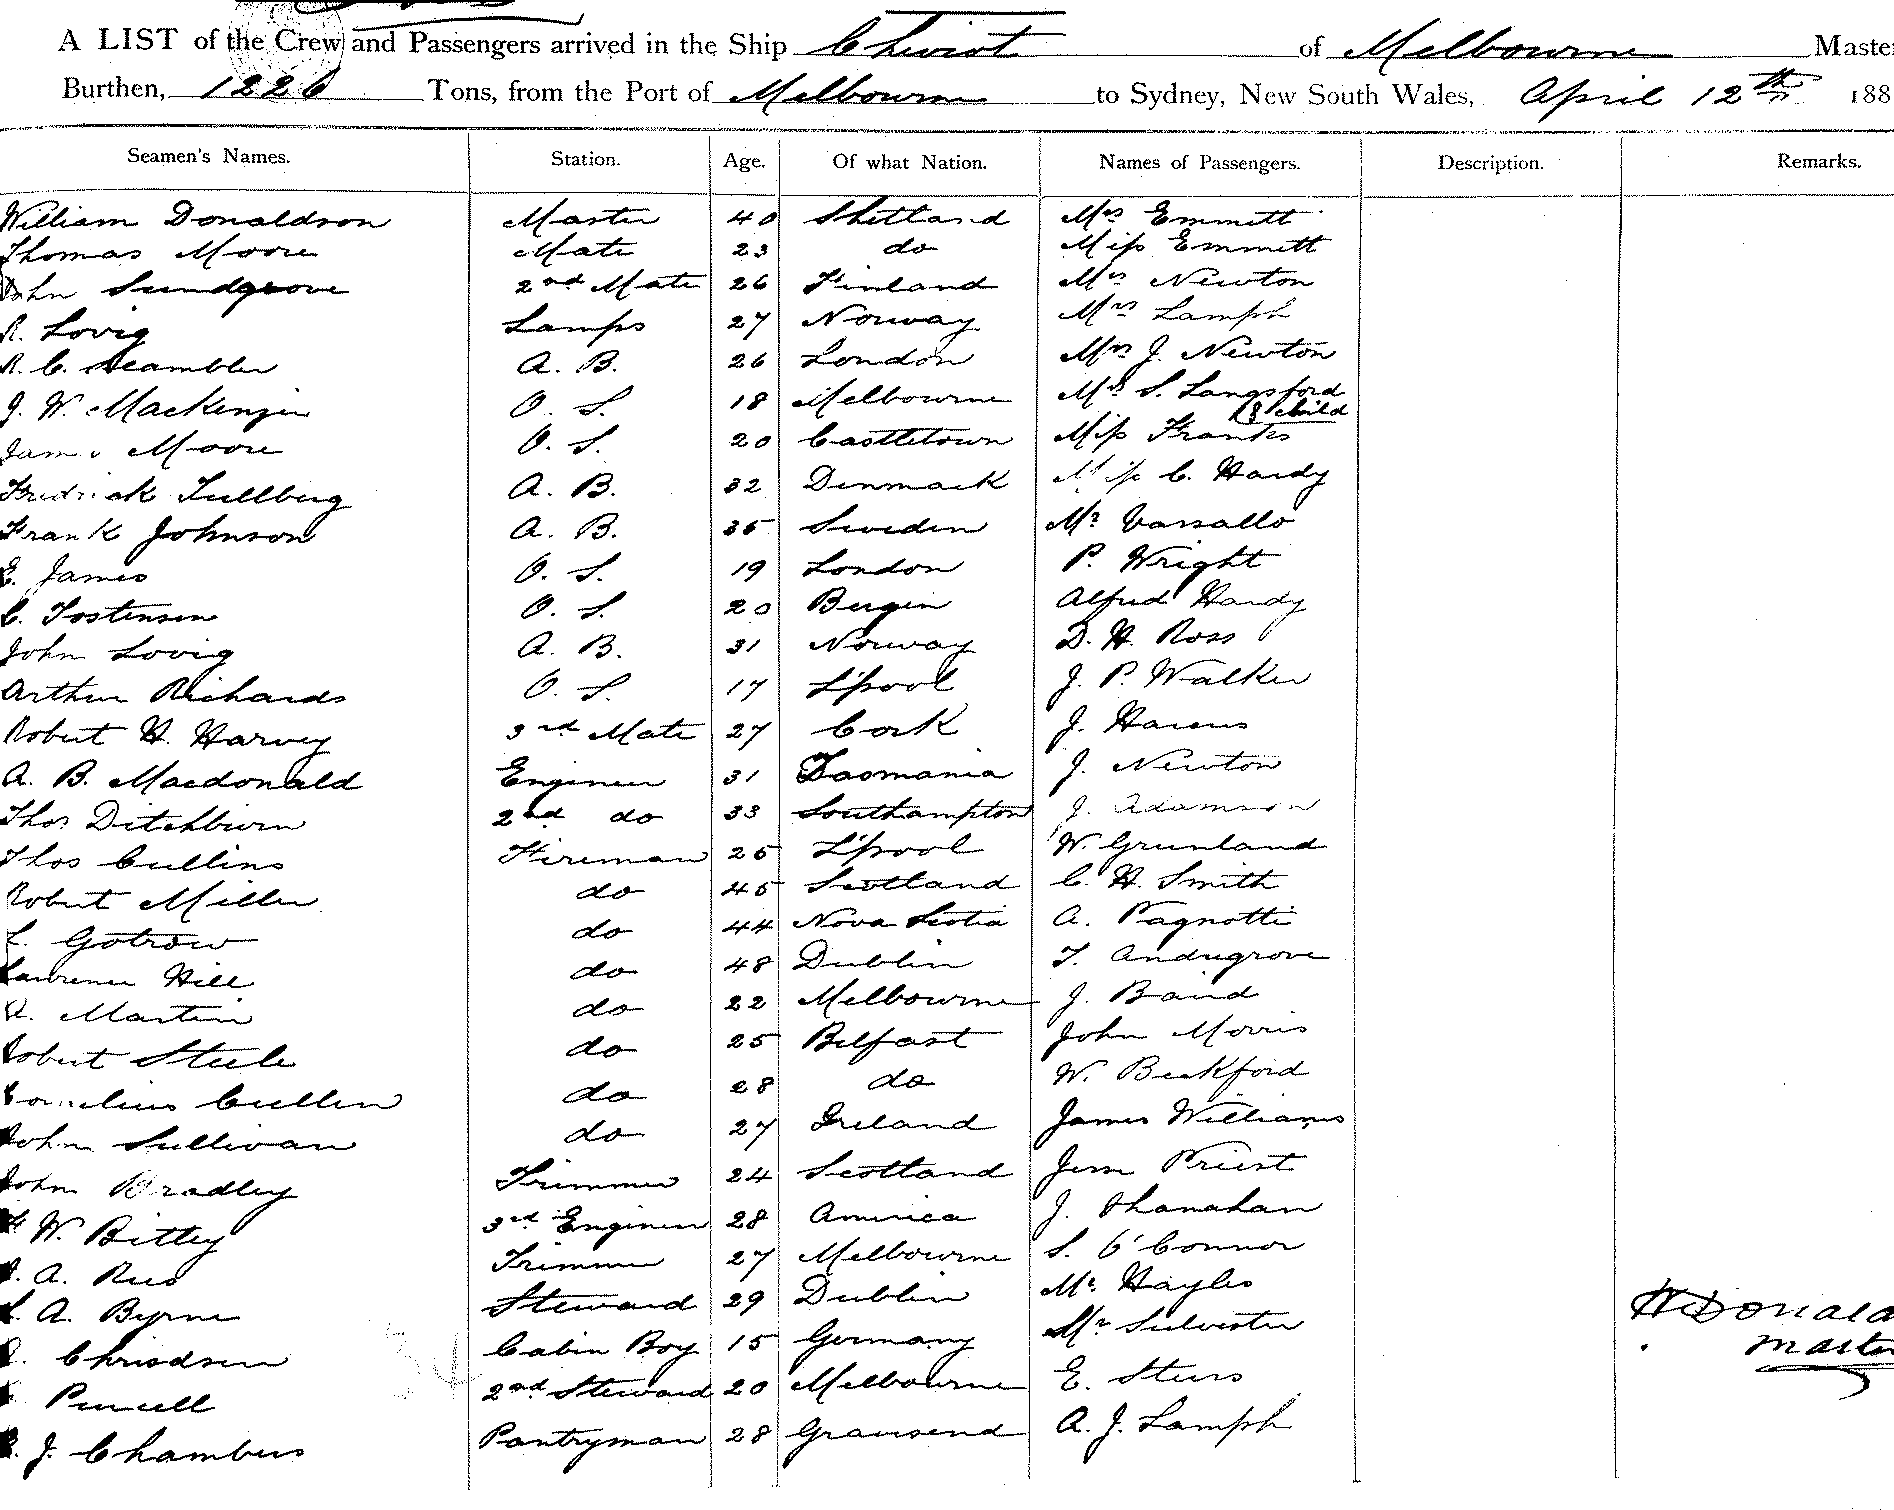 A LIST of the Crew and Passengers arrived in the Ship Cheviot of Melbourne Maste
Burthen, 1226 Tons, from the Port of Melbourne to Sydney, New South Wales, April 12th 188
Seamen's Names. Station. Age. Of what Nation. Names of Passengers. Description. Remarks.
William Donaldson Master 40 Shetland Mrs Emmett
Thomas Moore Mate 23 do Miss Emmett
John Sundgrove 2nd Mate 26 Finland Mrs Newton
R. Lovig Lamps 27 Norway Mrs Lamph
R. C. Scambler A. B. 26 London Mrs J. Newton
J. W. Mackenzie O. S. 18 Melbourne Mrs S. Langsford
& child
James Moore O. S. 20 Castletown Miss Franks
Fredrick Tullberg A. B. 32 Denmark Miss C. Hardy
Frank Johnson A. B. 35 Sweden Mr Vassallo
E. James O. S. 19 London P. Wright
C. Tostensen O. S. 20 Bergen Alfred Hardy
John Lovig A. B. 31 Norway D. H. Ross
Arthur Richards O. S. 17 L'pool J. P. Walker
Robert H. Harvey 3rd Mate 27 Cork J.
A. B. Macdonald Engineer 31 Tasmania J. Newton
Thos Ditchburn 2nd do 33 Southampton J. Adamson
Thos Cullins Fireman 25 L'pool W. Grunland
Robert Miller do 45 Scotland C. H. Smith
Gotrow do 44 Nova Scotia A. Pagnotti
Lawrence Hill do 48 Dublin T. Andregrove
Martin do 22 Melbourne J. Baird
Robert Steele do 25 Belfast John Morris
Cornelius Cullen do 28 do W. Beckford
John Sullivan do 27 Ireland James Williams
John Bradley Trimmer 24 Scotland Jem Priest
W. Bittey 3rd Engineer 28 America J. Shanahan
A. Rees Trimmer 27 Melbourne S. O'Connor
A. Byrne Steward 29 Dublin Mr Hayles
Chrisdsen Cabin Boy 15 Germany Mr Silvester
Purcell 2nd Steward 20 Melbourne E.
J. Chambers Pantryman 28 Gravesend A. J. Lamph
W Donald
Maste